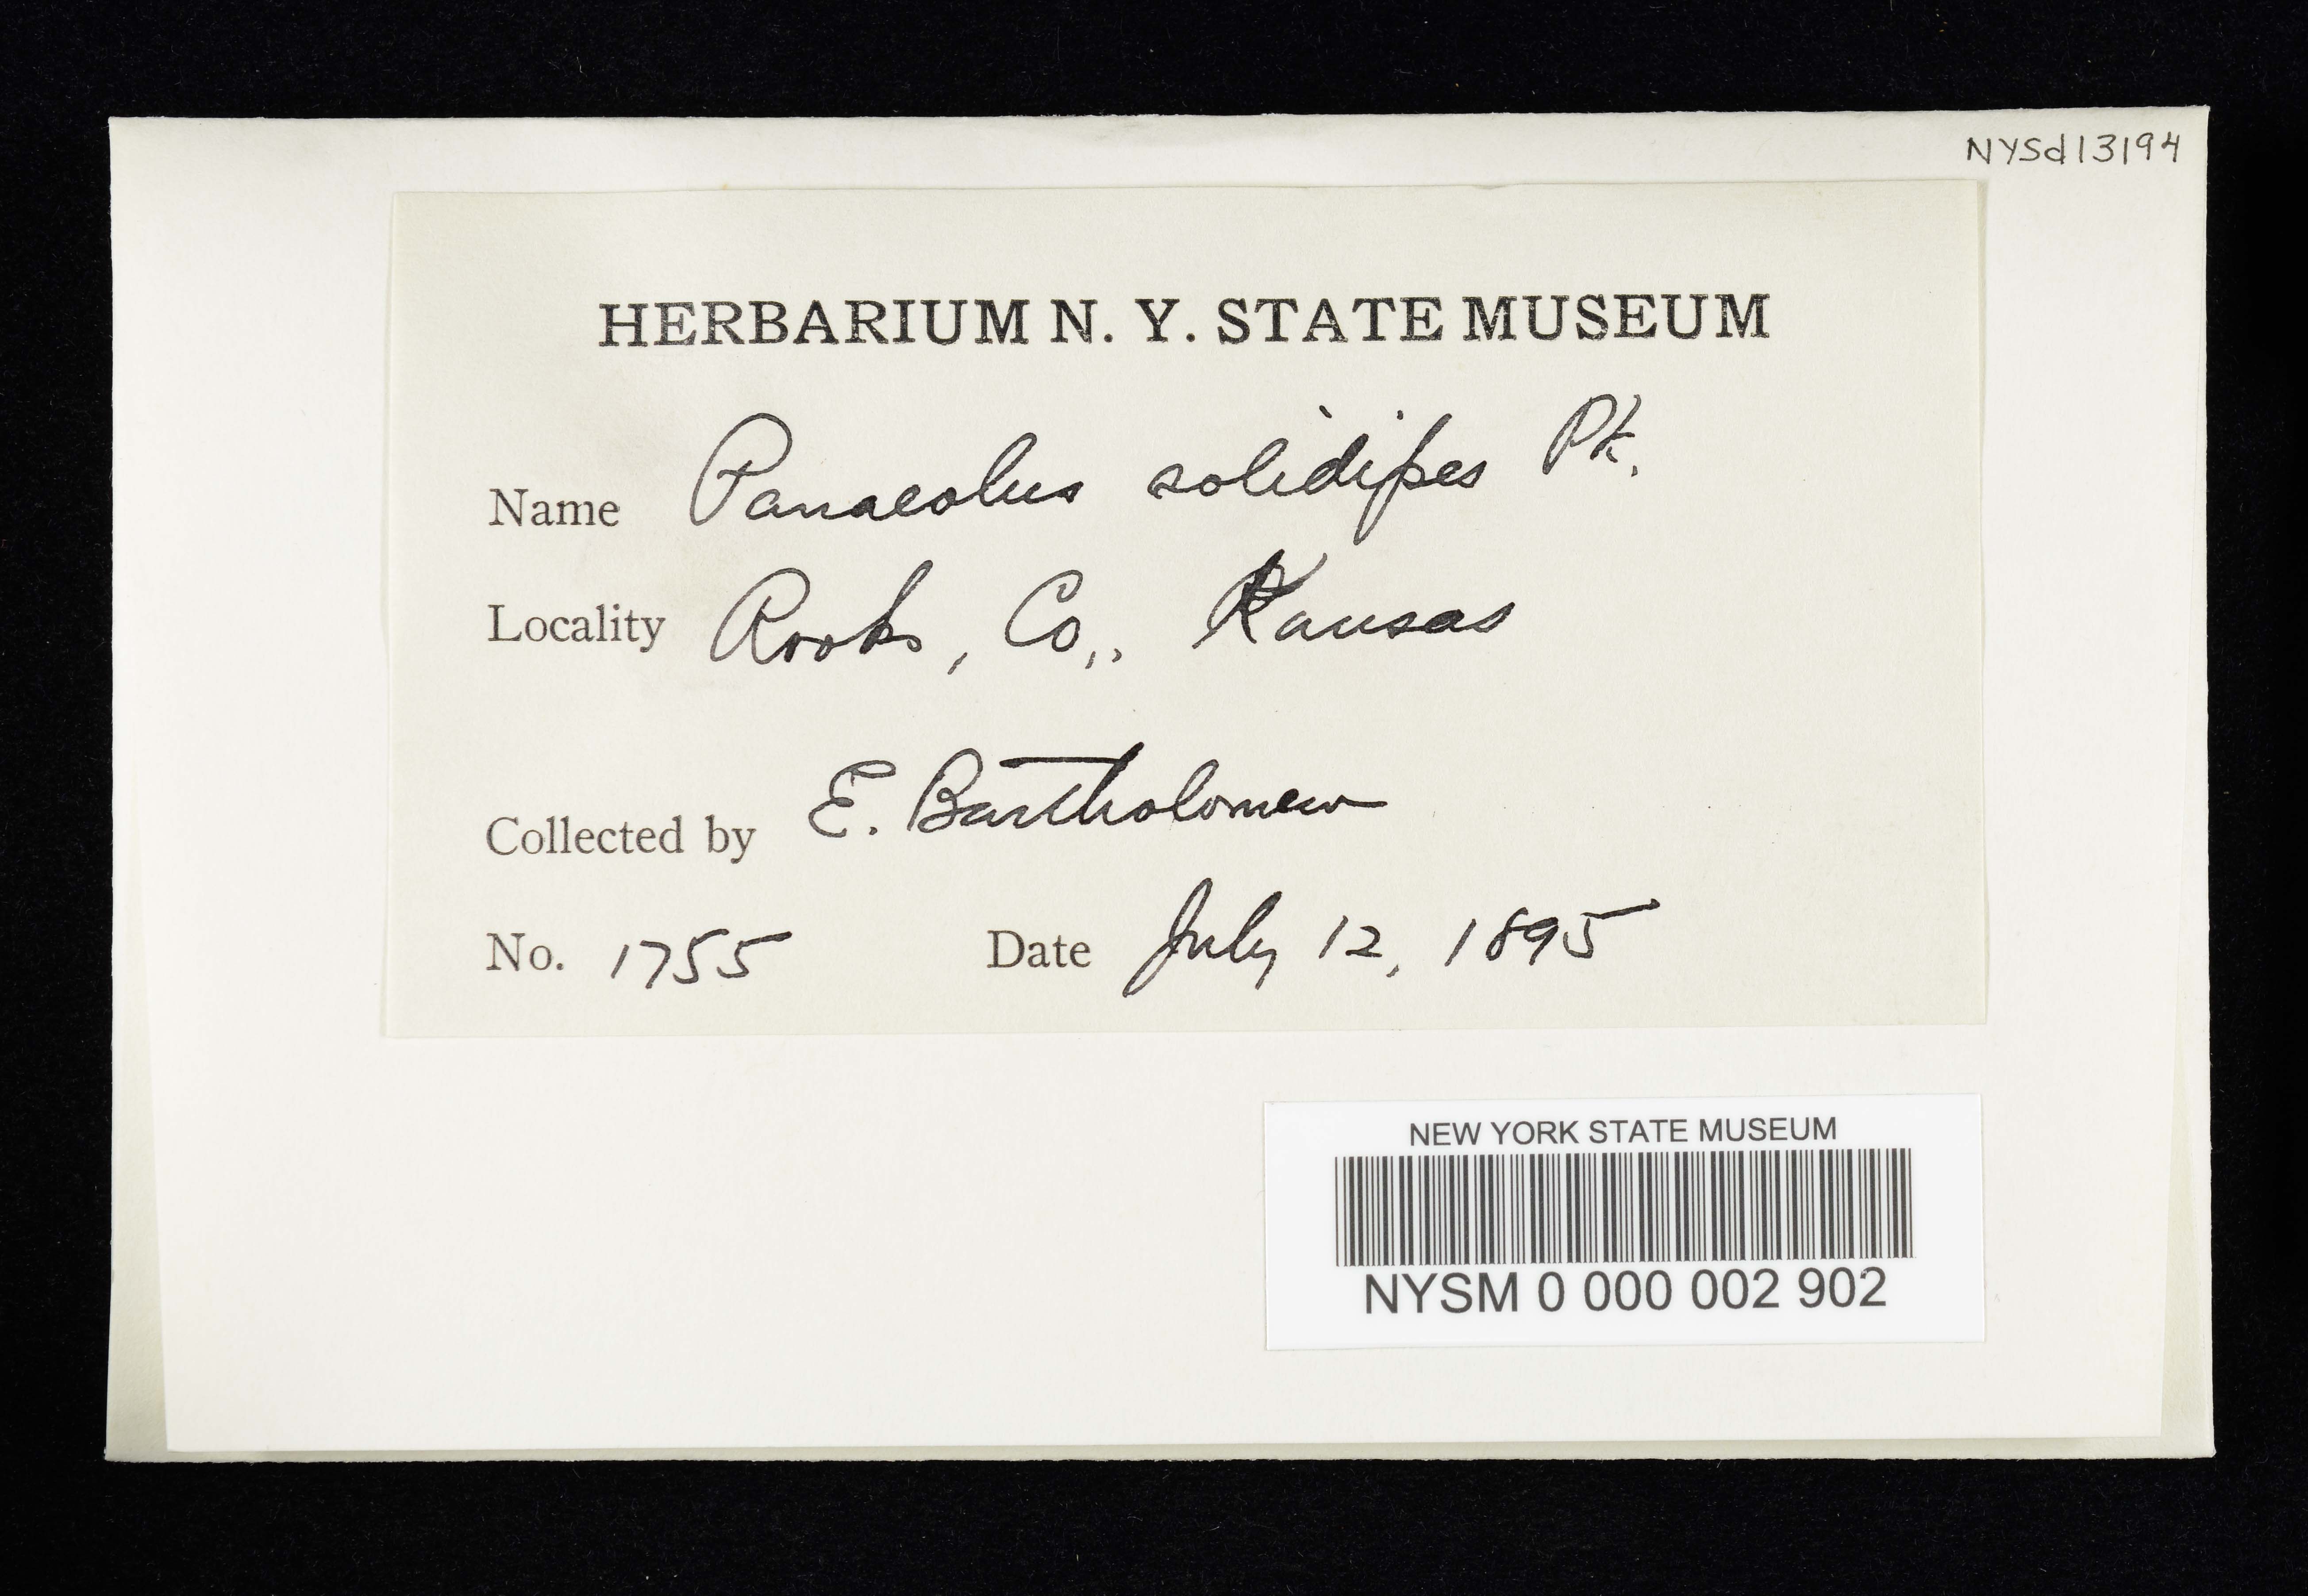 NYSd13194
HERBARIUM N. Y. STATE MUSEUM
Name Panaeolus solidipes Pk.
Locality Rooks, Co,. Kansas
Collected by E. Bartholomew
No. 1755 Date July 12, 1895
NEW YORK STATE MUSEUM
NYSM 0 000 002 902